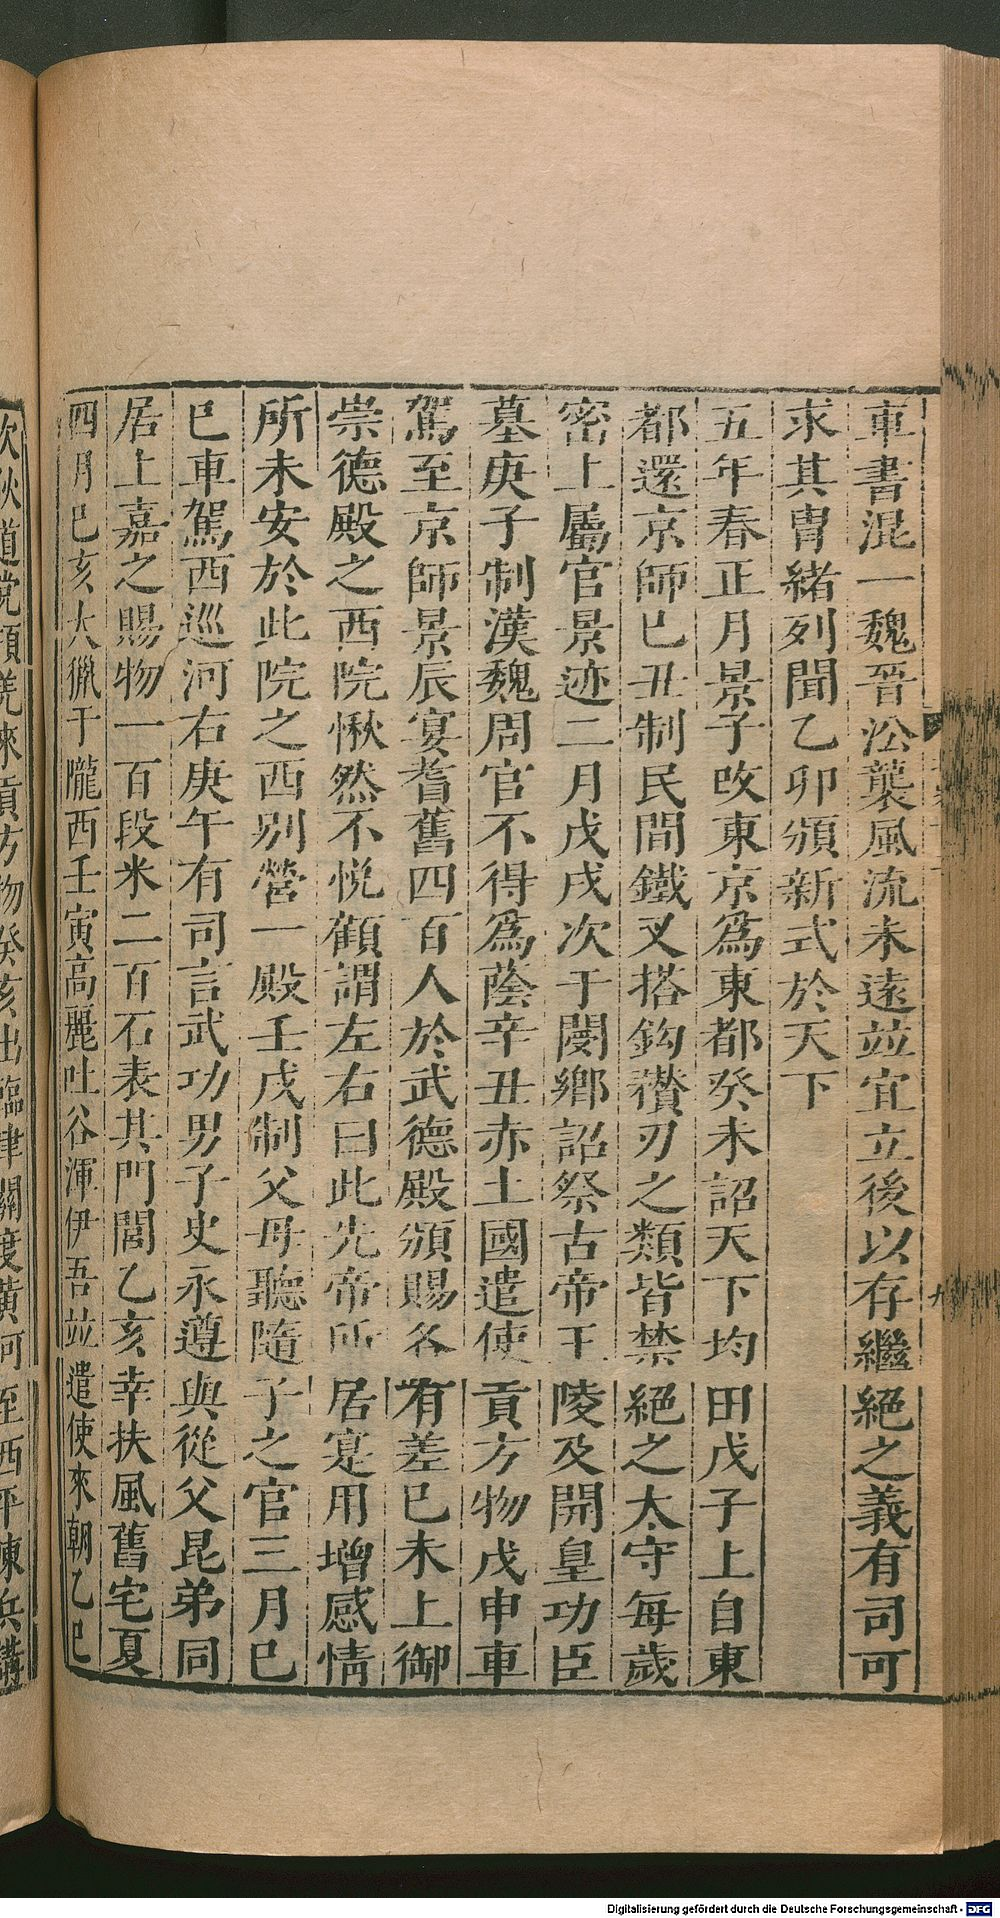 車書混一魏晉㳂襲風流未遠並宜立後以存繼絕之義有司可
求其冑緒列聞乙卯頒新式於天下
五年春正月景子改東京爲東都癸未詔天下均田戊子上自東
都還京師已丑制民間鐵叉搭鈎䂎刃之類皆禁絕之太守每歲
密上屬官景迹二月戊戌次于閿鄉詔祭古帝王陵及開皇功臣
墓庚子制漢魏周官不得爲蔭辛丑赤土國遣使貢方物戊申車
駕至京師景辰宴耆舊四百人於武德殿頒賜各有差已未上御
崇德殿之西院愀然不悅顧謂左右曰此先帝所居寔用增感情
所未安於此院之西別營一殿壬戌制父母聽隨子之官三月巳
巳車駕西巡河右庚午有司言武功男子史永遵與從父昆弟同
居上嘉之賜物一百段米二百石表其門閭乙亥幸扶風舊宅夏
四月巳亥大獵于隴西壬寅高麗吐谷渾伊吾並遣使來朝乙巳
次狄道党項羌來貢方物癸亥出臨津關渡黃河至西平陳兵講
Digitalisierung gefördert durch die Deutsche Forschungsgemeinschaft - DFG